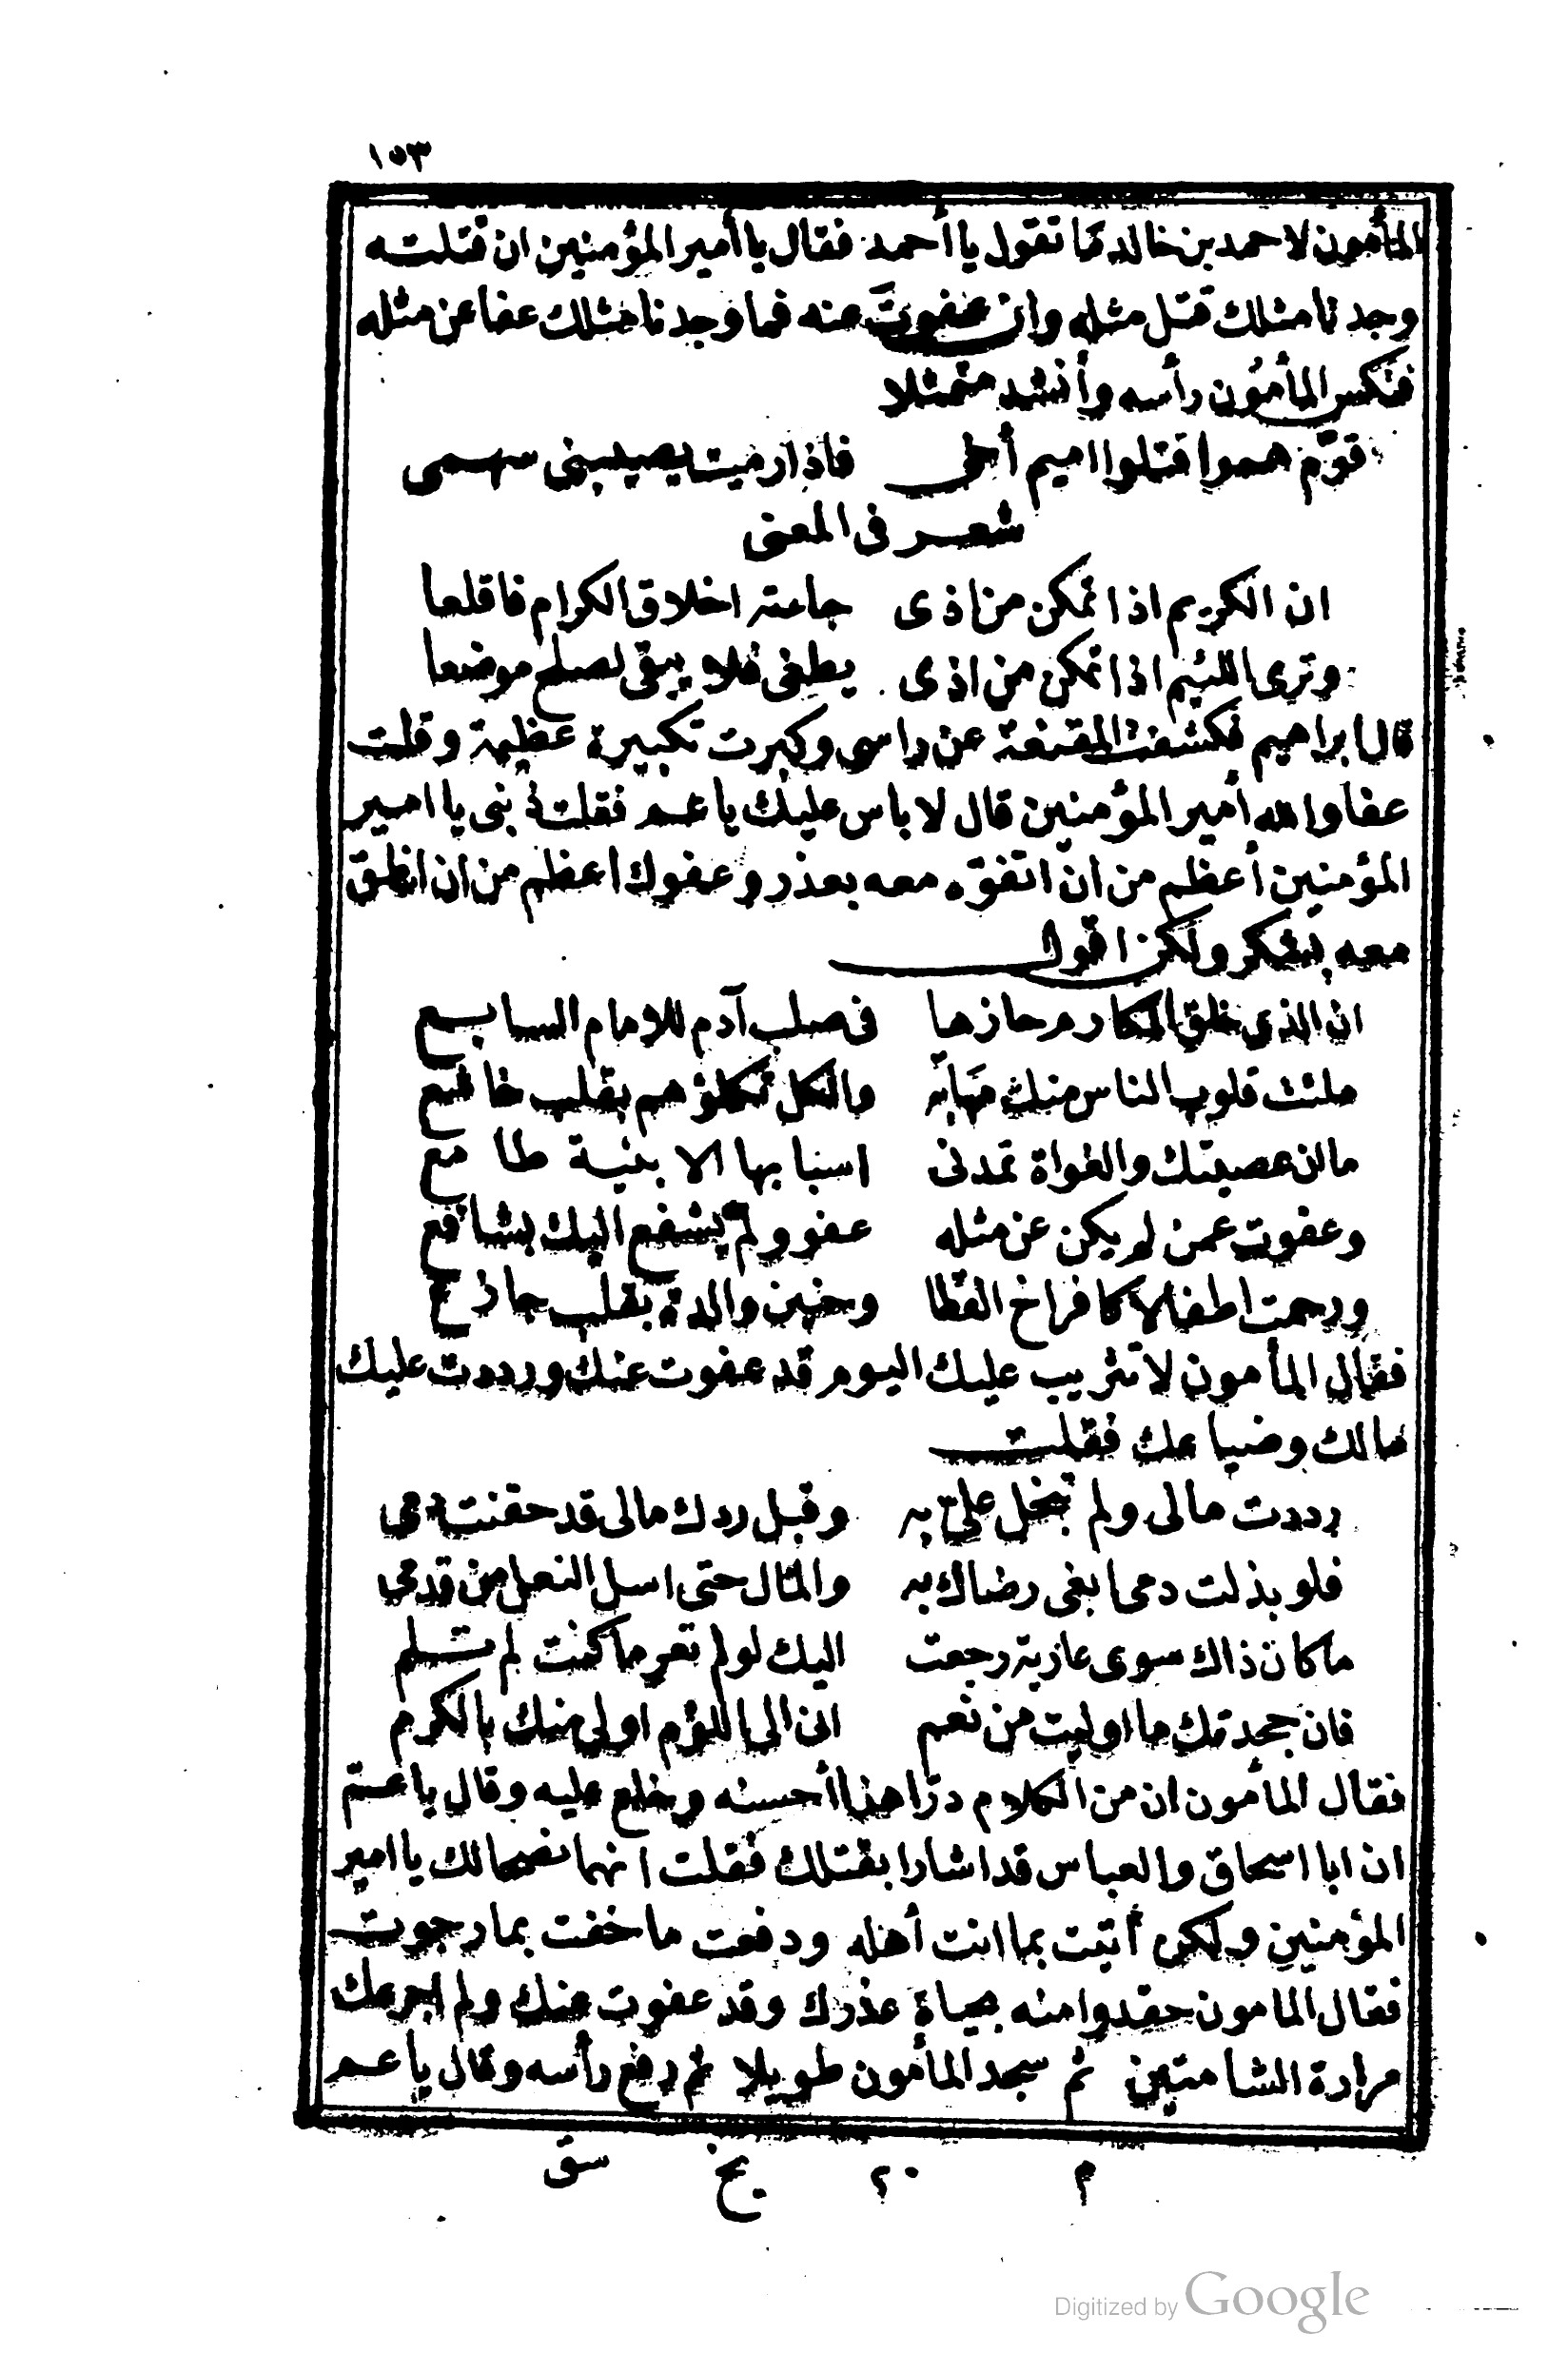 ١٥٣
المأمون لاحمد بن خالد ما تقول يا أحمد فقال يا أمير المؤمنين ان قتلته
وجدنا مثلك قتل مثله وان عفوت عنه فما وجدنا مثلك عفا عن مثله
فنكس المأمون رأسه وأنشد متمثلا
قوم هموا قتلوا اميم أخى فاذا رميت يصيبنى سهمى
شعر فى المعنى
ان الكريم اذا تمكن من اذى جاءته اخلاق الكرام فاقلعا
وترى اللئيم اذا تمكن من اذى يطغى فلا يبقى لصلح موضعا
قال ابراهيم فكشفت المقنعة عن راسى وكبرت تكبيرة عظيمة وقلت
عفا والله أمير المؤمنين قال لا باس عليك يا عم فقلت ذنبى يا امير
المؤمنين أعظم من ان اتفوّه معه بعذر وعفوك اعظم من ان انطق
معه بشكر ولكن اقول
ان الذى خلق المكارم حازها فى صلب آدم للامام السابع
ملئت قلوب الناس منك مهابة والكل تكلؤهم بقلب خاشع
ما ان عصيتك والغواة تمدنى اسبابها الا بنية طامع
وعفوت عمن لم يكن عن مثله عفو ولم يشفع اليك بشافع
ورحمت اطفالا كافراخ القطا وحنين والدة بقلب جازع
فقال المأمون لا تثريب عليك اليوم قد عفوت عنك ورددت عليك
مالك وضياعك فقلت
رددت مالى ولم تبخل علىّ به وقبل ردك مالى قد حقنت دمى
فلو بذلت دمى ابغى رضاك به والمال حتى اسل النعل من قدمى
ما كان ذاك سوى عارية رجعت اليك لو لم تعرها كنت لم تلم
فان جحدتك ما اوليت من نعم انى الى اللؤم اولى منك بالكرم
فقال المأمون ان من الكلام درّا هذا أحسنه وخلع عليه وقال يا عم
ان ابا اسحاق والعباس قد اشارا بقتلك فقلت انهما نصحا لك يا امير
المؤمنين ولكن أتيت بما انت أهله ودفعت ما خفت بما رجوت
فقال المامون حقدوا منه بحياة عذرك وقد عفوت عنك ولم اجرعك
مرارة الشامتين ثم سجد المأمون طويلا ثم رفع رأسه وقال يا عم
م ٢٠ يخ سق
Digitized by Google